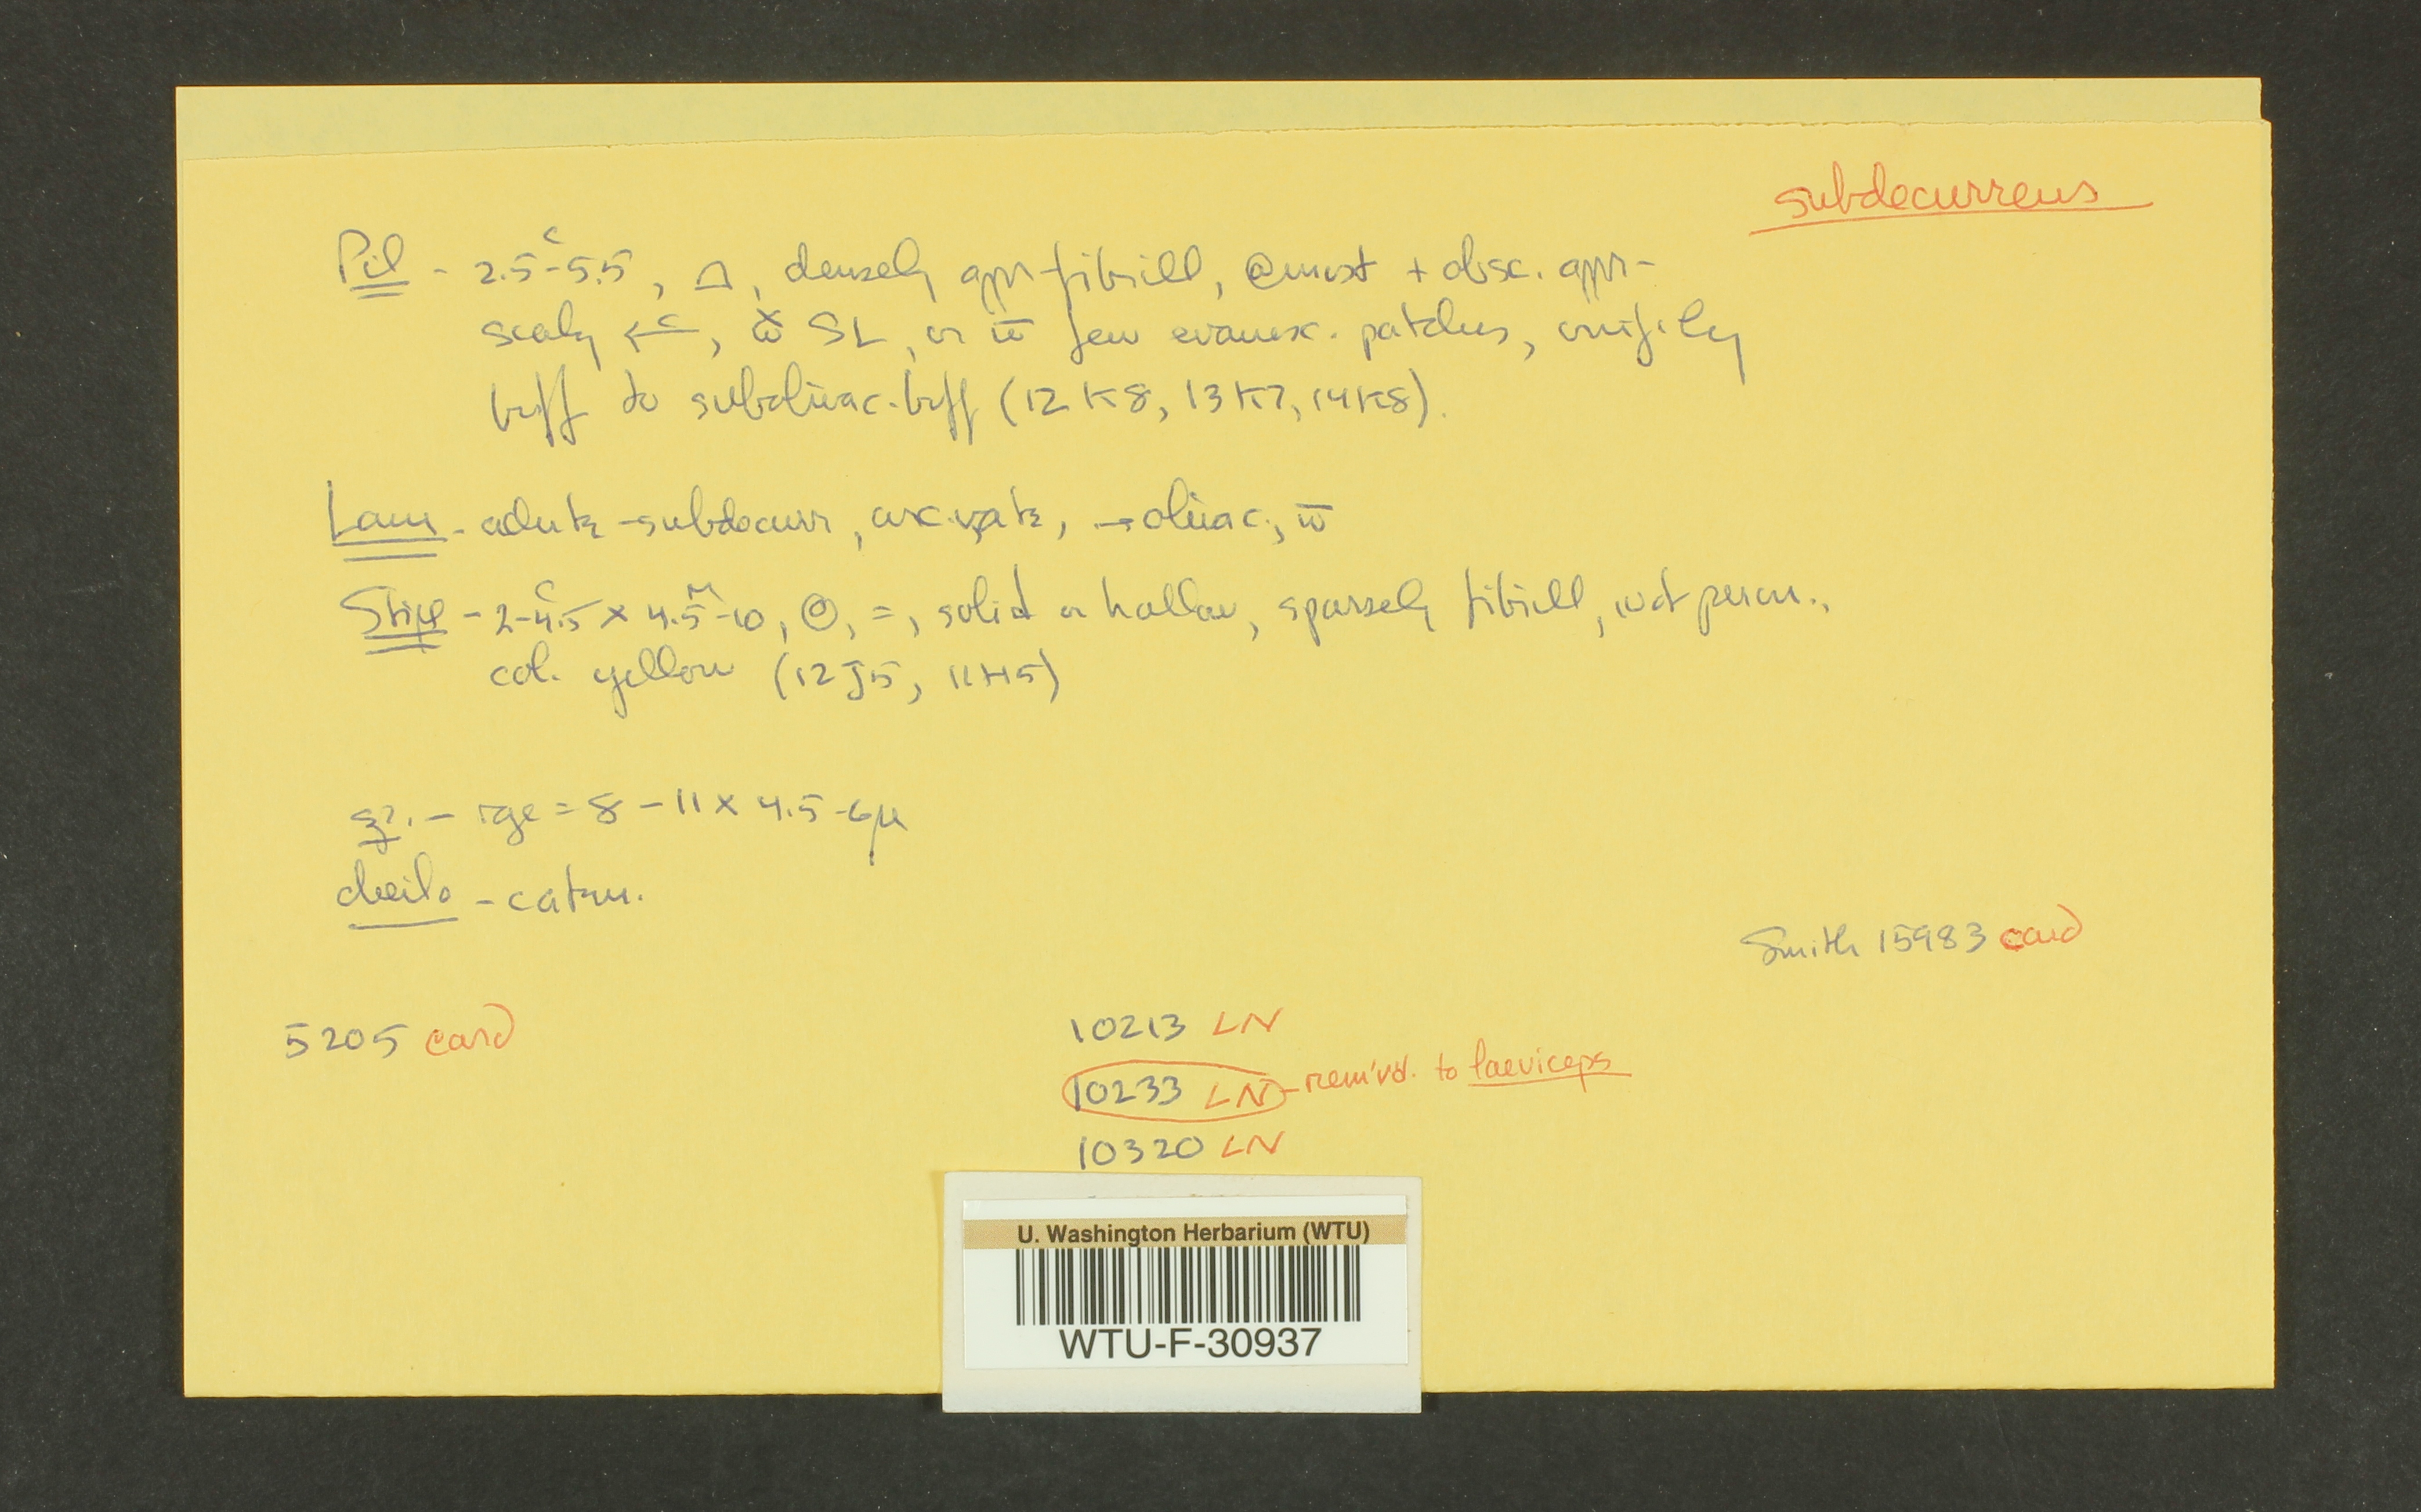 subdecurrens
Pil - 2.5-5.5 c, densely appr-fibrill, @ most + obsc. appr-
scaly ← c, SL, or w̄ few evanesc. patches, unif'ly
buff to subolivac. buff (12K8, 13K7, 14K8).
Lam - adnate-subdecurr, arcuate, → olivac., w̄
Stipe - 2-4.5 c x 4.5-10 m, =, solid or hollow, sparsely fibrill, not peron.,
col. yellow (12J5, 11H5)
rge = 8-11 x 4.5-6µ
cheilo - caten.
Smith 15983 card
5205 card
10213 LN
10233 LN - rem'vd. to laeviceps
10320 LN
U. Washington Herbarium (WTU)
WTU-F-30937